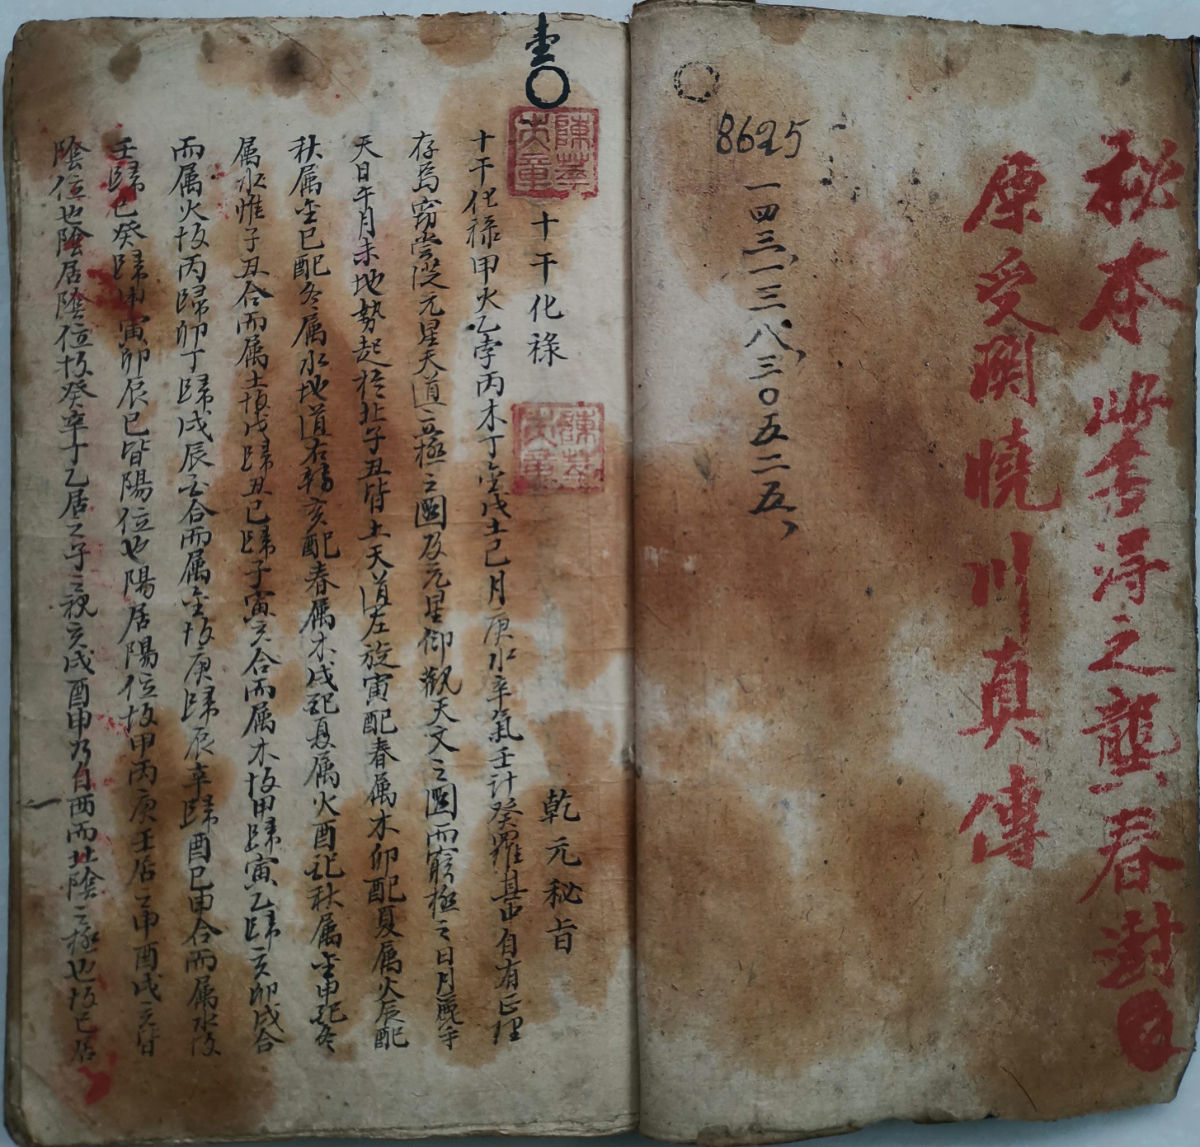 秘本 得之龔春封
原受關曉川真傳
8625
一四三一三八三〇五二五
十干化祿 乾元秘旨
十干化祿甲火乙孛丙木丁金戊土己月庚水辛氣壬计癸羅其中自有正理
存焉窃嘗從元星天道立極之圖及元星仰觀天文之圖而窮極之日月麗乎
天日午月未地勢起於北子丑皆土天道左旋寅配春属木卯配夏属火辰配
秋属金巳配冬属水地道右轉亥配春属木戌配夏属火酉配秋属金申配冬
属水惟子丑合而属土故戊歸丑己歸子寅亥合而属木故甲歸寅乙歸亥卯戌合
而属火故丙歸卯丁歸戌辰酉合而属金故庚歸辰辛歸酉巳申合而属水故
壬歸巳癸歸申寅卯辰巳皆陽位也陽居陽位故甲丙庚壬居之申酉戌亥皆
陰位也陰居陰位故癸辛丁乙居之子亥戌酉申乃自西而北陰之極也故己居
陳